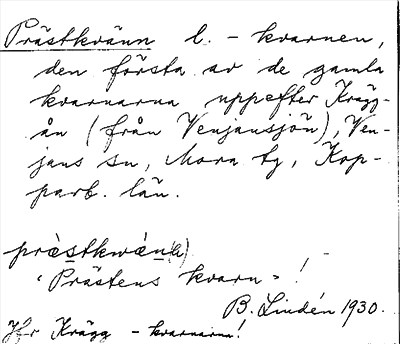 Prästkvänn l. - kvarnen,
den första av de gamla
kvarnarna uppefter Krägg-
ån (från Venjansjön), Ven-
jans sn, Mora tg, Kop-
parb. län.
"Prästens kvarn"!
B. Lindén 1930.
Jfr Krägg - kvarnarna!